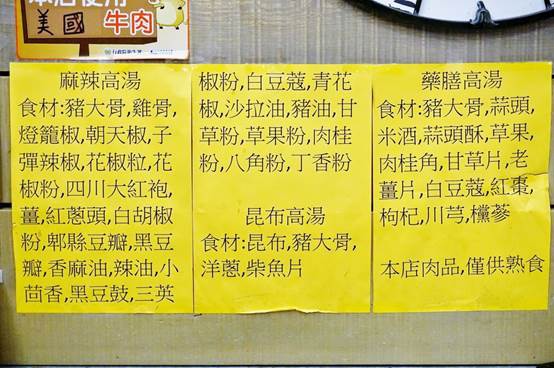 美國 牛肉
麻辣高湯
食材:豬大骨,雞骨,
燈籠椒,朝天椒,子
彈辣椒,花椒粒,花
椒粉,四川大紅袍,
薑,紅蔥頭,白胡椒
粉,郫縣豆瓣,黑豆
瓣,香麻油,辣油,小
茴香,黑豆鼓,三英
椒粉,白豆蔻,青花
椒,沙拉油,豬油,甘
草粉,草果粉,肉桂
粉,八角粉,丁香粉
昆布高湯
食材:昆布,豬大骨,
洋蔥,柴魚片
藥膳高湯
食材:豬大骨,蒜頭,
米酒,蒜頭酥,草果,
肉桂角,甘草片,老
薑片,白豆蔻,紅棗,
枸杞,川芎,欉蔘
本店肉品,僅供熟食